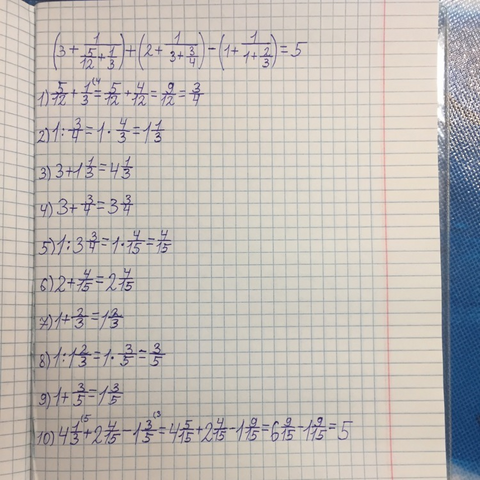 (3 + 1/(5/12 + 1/3)) + (2 + 1/(3 + 3/4)) - (1 + 1/(1 + 2/3)) = 5
1) 5/12 + 1/3 (4 = 5/12 + 4/12 = 9/12 = 3/4
2) 1 : 3/4 = 1 · 4/3 = 1 1/3
3) 3 + 1 1/3 = 4 1/3
4) 3 + 3/4 = 3 3/4
5) 1 : 3 3/4 = 1 · 4/15 = 4/15
6) 2 + 4/15 = 2 4/15
7) 1 + 2/3 = 1 2/3
8) 1 : 1 2/3 = 1 · 3/5 = 3/5
9) 1 + 3/5 = 1 3/5
10) 4 1/3 (5 + 2 4/15 - 1 3/5 (3 = 4 5/15 + 2 4/15 - 1 9/15 = 6 9/15 - 1 9/15 = 5